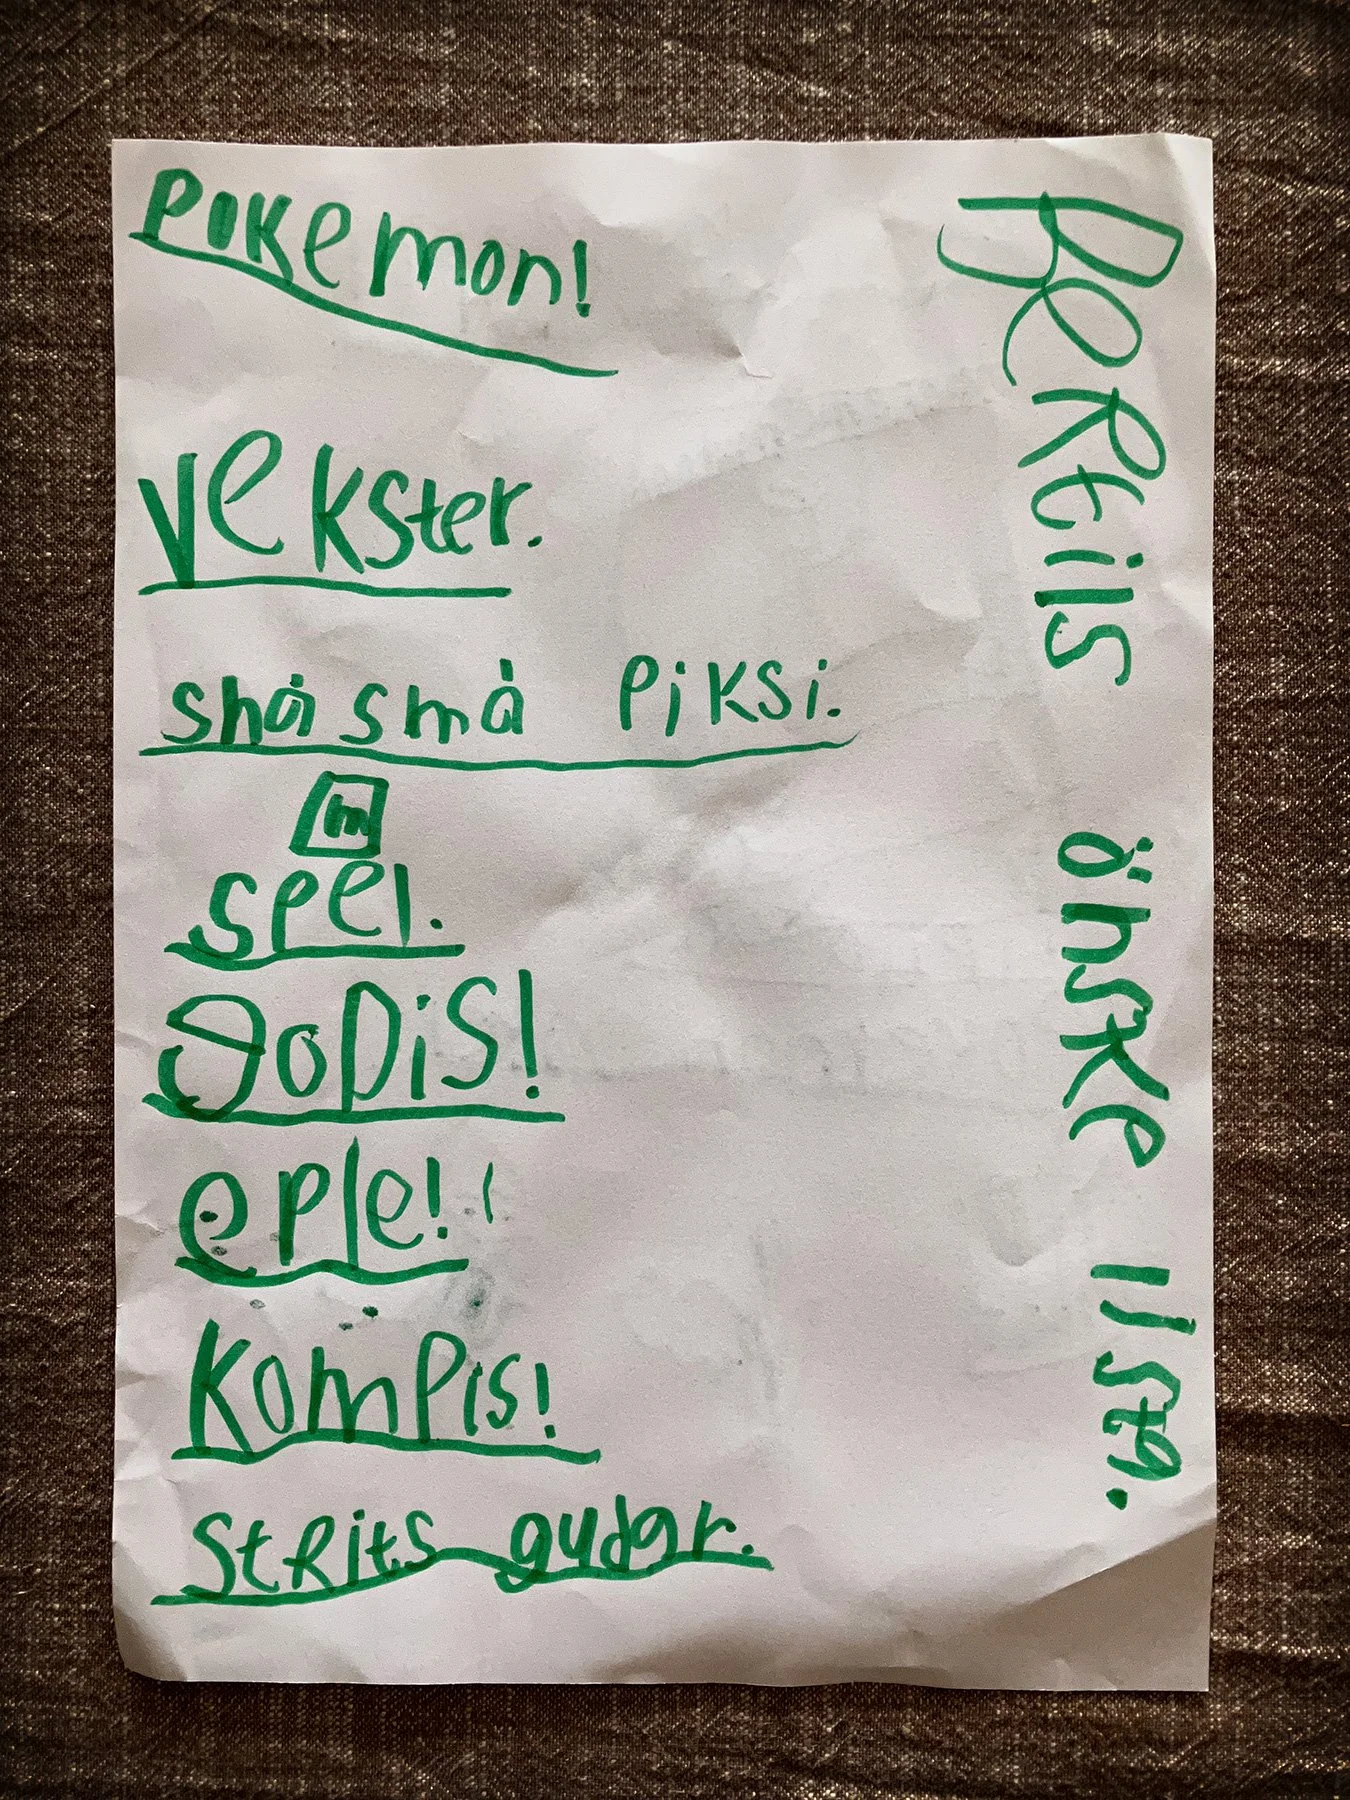 Pokemon!
vekster.
snåsmå piksi.
m
speel.
GoDiS!
eple!!
Kompis!
stRits gudar.
BeRtils önske lista.